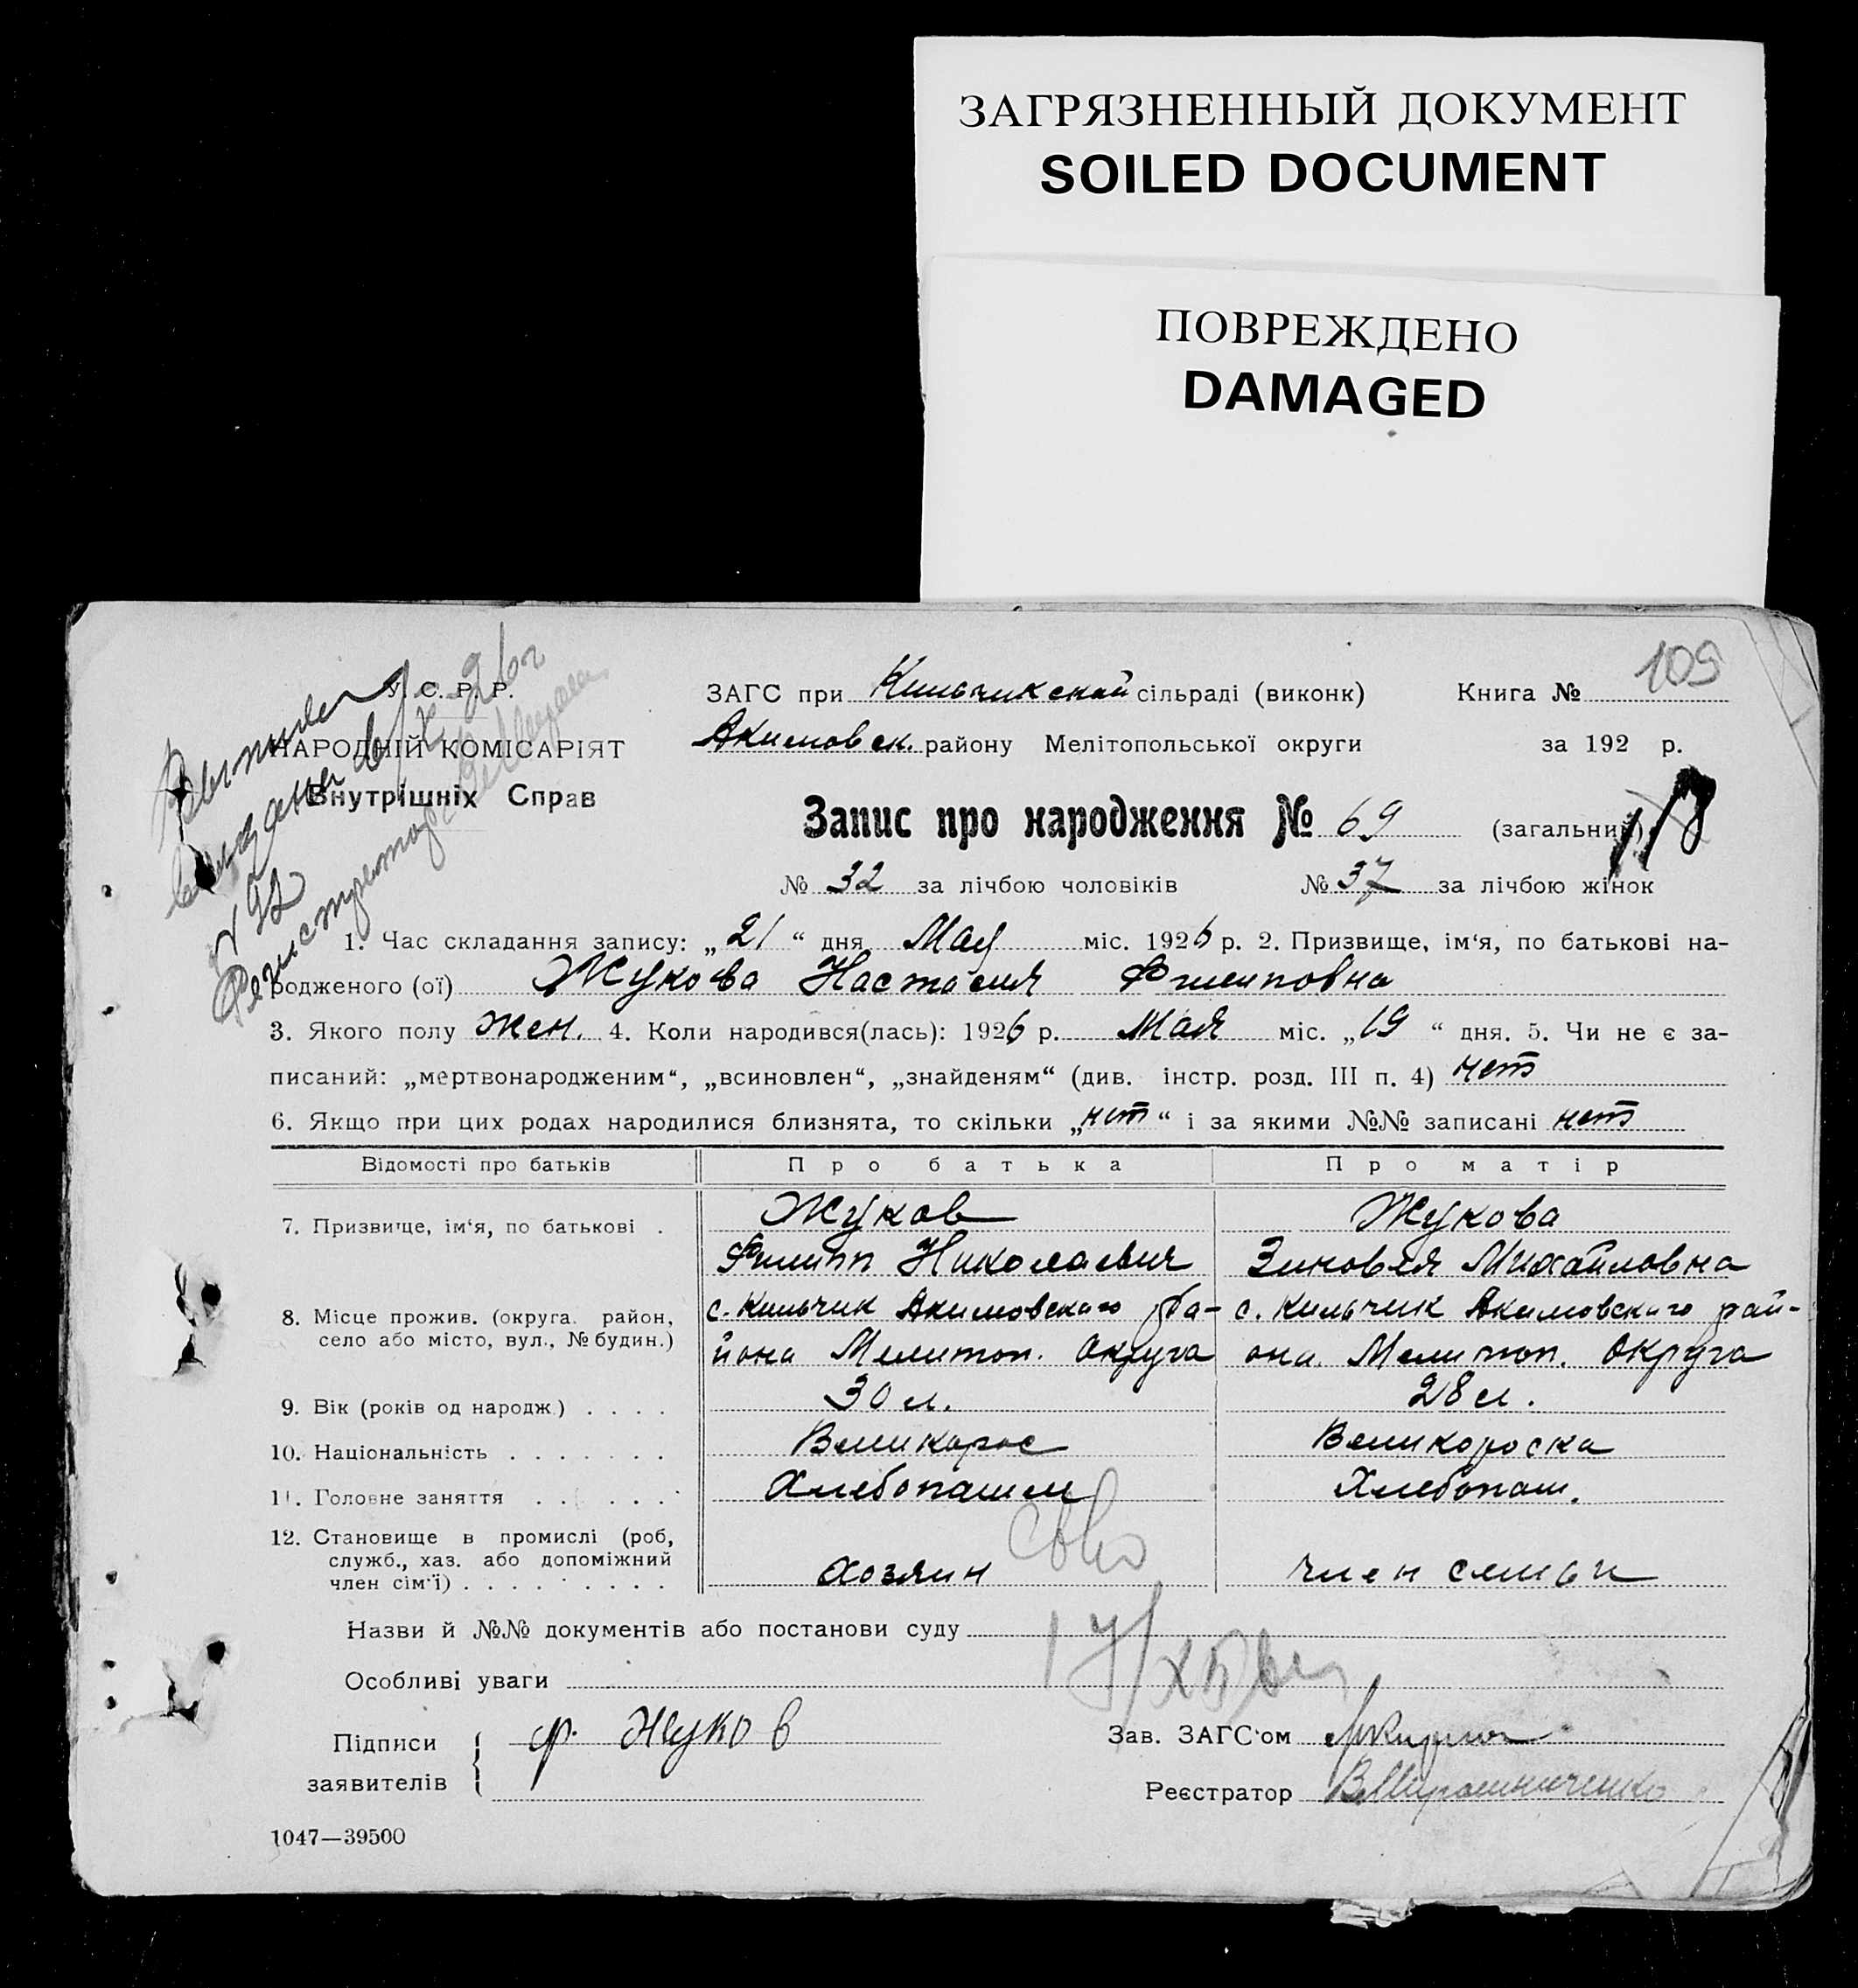 ЗАГРЯЗНЕННЫЙ ДОКУМЕНТ
SOILED DOCUMENT
ПОВРЕЖДЕНО
DAMAGED
109
У. С. Р. Р.
НАРОДНІЙ КОМІСАРІЯТ
Внутрішніх Справ
ЗАГС при Кильчикской сільраді (виконк) Книга №
Акимовск. району Мелітопольської округи за 192 р.
Запис про народження № 69 (загальний)
118
№ 32 за лічбою чоловіків № 37 за лічбою жінок
1. Час складання запису: „21“ дня Мая міс. 1926 р. 2. Призвище, ім‘я, по батькові на-
родженого (ої) Жукова Настасия Филиповна
3. Якого полу жен. 4. Коли народився(лась): 1926 р. Мая міс. „19“ дня. 5. Чи не є за-
писаний: „мертвонародженим“, „всиновлен“, „знайденям“ (див. інстр. розд. III п. 4) нет
6. Якщо при цих родах народилися близнята, то скільки „нет“ і за якими №№ записані нет
Відомості про батьків Про батька Про матір
7. Призвище, ім‘я, по батькові . Жуков Жукова
Филипп Николаевич Зиновея Михайловна
8. Місце прожив. (округа. район, село або місто, вул., № будин.) с. Кильчик Акимовского ра- с. Кильчик Акимовского рай-
йона Мелитоп. Округа она Мелитоп. Округа
9. Вік (років од народж.) . . . . 30 л. 28 л.
10. Національність . . . . . . . Великорос Великороска
11. Головне заняття . . . . . . Хлебопашец Хлебопаш.
12. Становище в промислі (роб,
служб., хаз. або допоміжний
член сім‘ї) . . . . . . . . . Хозяин член семьи
Назви й №№ документів або постанови суду
Особливі уваги
Підписи заявителів Ф. Жуков
Зав. ЗАГС‘ом
Реєстратор В Мирошниченко
1047—39500